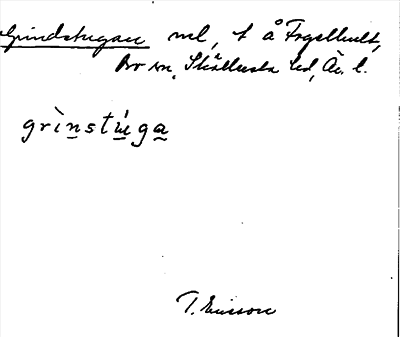 Grindstugan ml, t å Fogelhult,
Bro sn, Skällunda hd, Äv. l.
grìnstúga
T. Ericsson